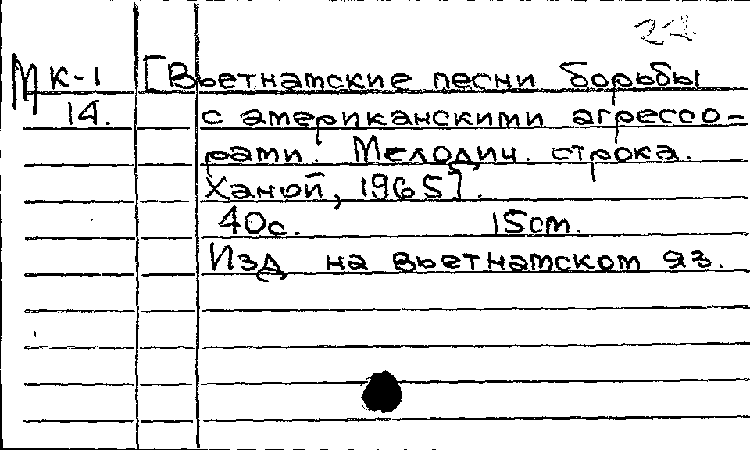 22
М К-1 [Вьетнамские песни борьбы
14. с американскими агрессо-
рами. Мелодич. строка.
Ханой, 1965].
40с. 15см.
Изд. на вьетнамском яз.